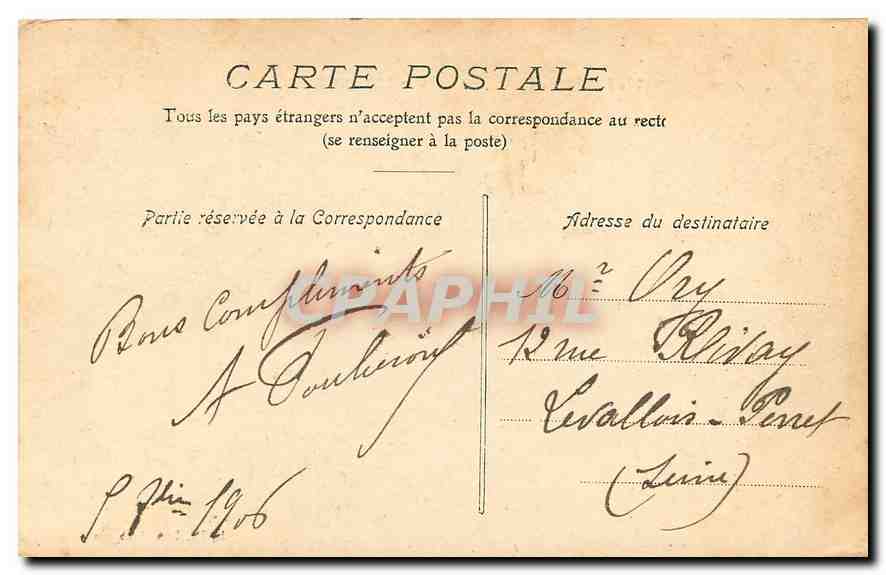 CARTE POSTALE
Tous les pays étrangers n'acceptent pas la correspondance au recto
(se renseigner à la poste)
Partie réservée à la Correspondance
Bons compliments
A
5 1906
Adresse du destinataire
Mr Ory
12 rue
Levallois-Perret
(Seine)
CPAPHIL